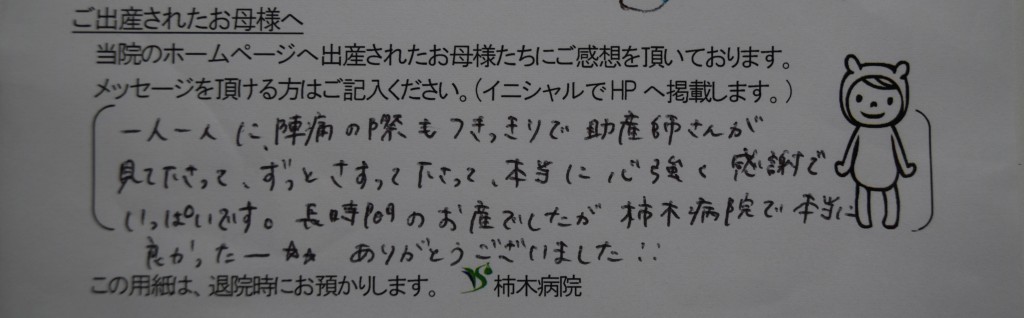 ご出産されたお母様へ
当院のホームページへ出産されたお母様たちにご感想を頂いております。
メッセージを頂ける方はご記入ください。(イニシャルでHPへ掲載します。)
一人一人に、陣痛の際もつきっきりで助産師さんが
見て下さって、ずっとさすって下さって、本当に心強く感謝で
いっぱいです。長時間のお産でしたが柿木病院で本当に
良かったー☆☆ ありがとうございました∵
この用紙は、退院時にお預かりします。 柿木病院